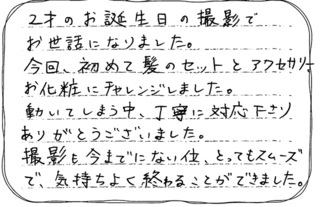 2才のお誕生日の撮影で
お世話になりました。
今回、初めて髪のセットとアクセサリー
お化粧にチャレンジしました。
動いてしまう中、丁寧に対応下さり
ありがとうございました。
撮影も今までにない位、とってもスムーズ
で、気持ちよく終わることができました。